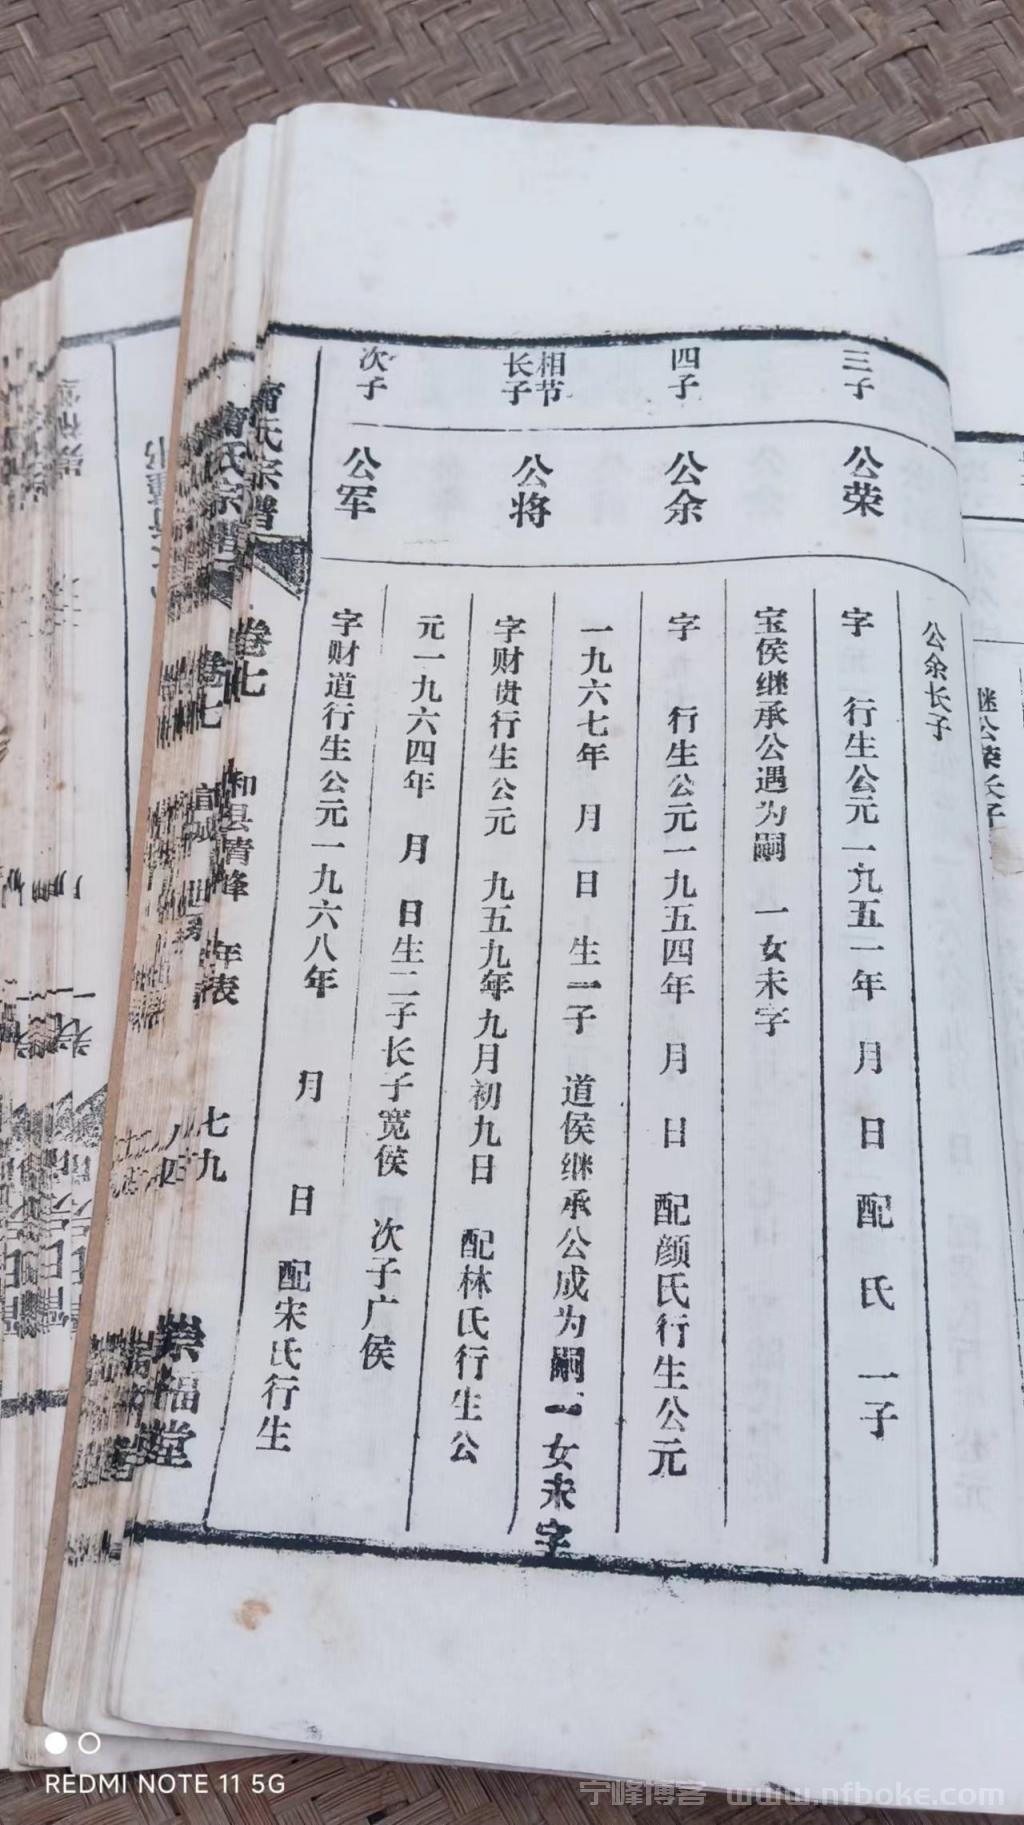 公余长子
三子
公荣
字 行生公元一九五一年 月 日 配 氏 一子
宝侯继承公遇为嗣 一女未字
四子
公余
字 行生公元一九五四年 月 日 配颜氏行生公元
一九六七年 月 日 生一子 道侯继承公成为嗣一女未字
相节长子
公将
字财贵行生公元 九五九年九月初九日 配林氏行生公
元一九六四年 月 日生二子长子宽侯 次子广侯
次子
公军
字财道行生公元一九六八年 月 日 配宋氏行生
甯氏宗谱 卷七 和县清峰 年表 七九 崇福堂
甯氏宗谱 卷七 宣城
继公荣长子
REDMI NOTE 11 5G
宁峰博客 www.nfboke.com